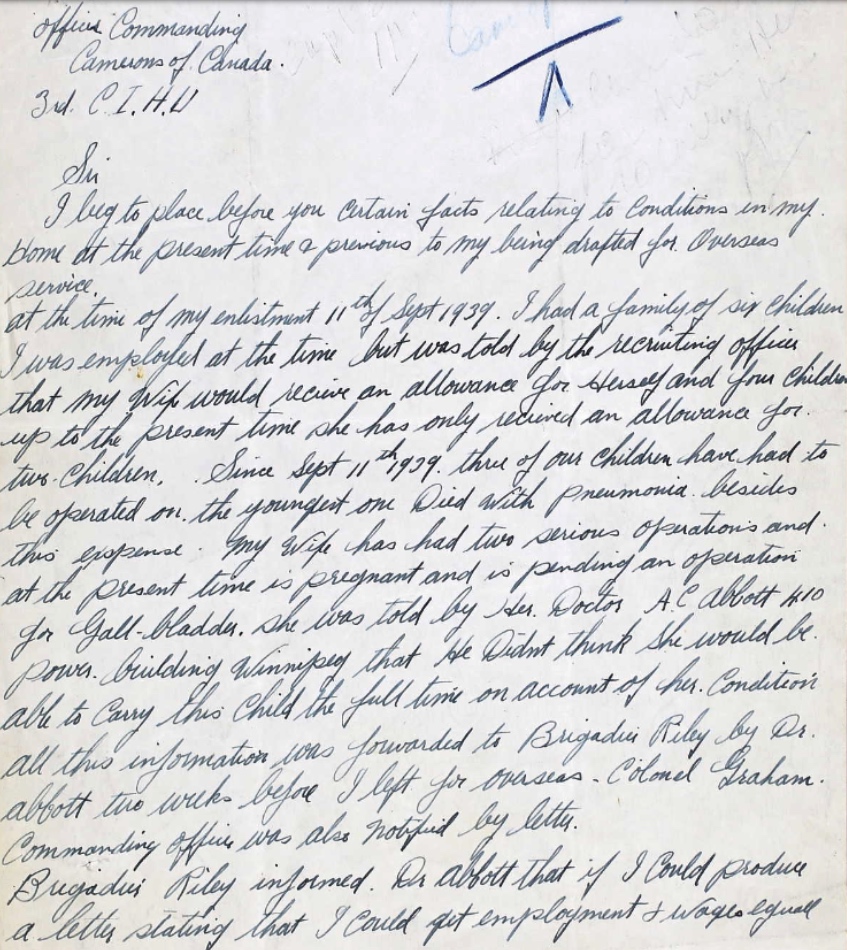 officer Commanding
Camerons of Canada.
3rd. C. I. H. U
Sir
I beg to place before you certain facts relating to conditions in my.
Home at the present time & previous to my being drafted for Overseas
service.
at the time of my enlistment 11th of Sept 1939. I had a family of six children
I was employed at the time but was told by the recruiting officer
that my Wife would recieve an allowance for Herself and four children
up to the present time she has only recieved an allowance for.
two children. Since Sept 11th 1939. three of our children have had to
be operated on. the youngest one Died with pneumonia. besides
this expense. My Wife has had two serious operations and.
at the present time is pregnant and is pending an operation
for Gall-bladder. she was told by Her. Doctor A.C Abbott 410
power. building Winnipeg that He Didnt think she would be.
able to Carry this Child the full time on account of her. Condition
all this information was forwarded to Brigadier Riley by Dr.
abbott two weeks before I left for overseas - Colonel Graham.
Commanding officer was also Notified by letter.
Brigadier Riley informed. Dr abbott that if I Could produce
a letter stating that I Could get employment & wages equall